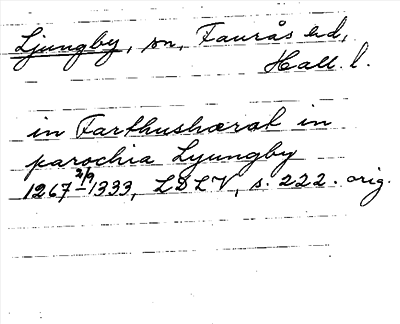 Ljungby, sn, Faurås hd,
Hall. l.
in Farthushæral in
parochia Lyungby
1267 2/9 1333, LDLV, s. 222. orig.